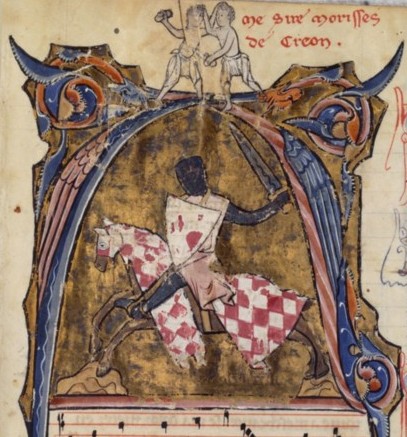 Me sire Morisses
de Creon.